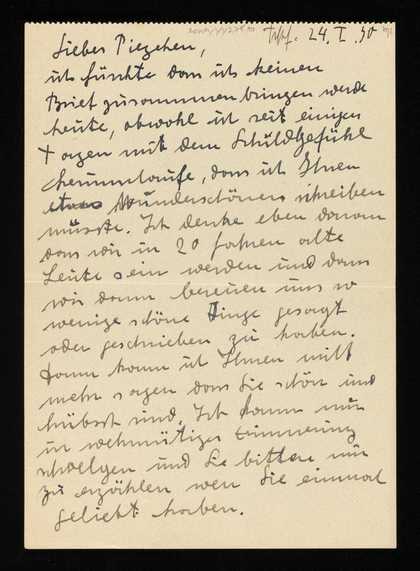 Tspf. 24. I. 50
Liebes Piezchen,
ich fürchte dass ich keinen
Brief zusammen bringen werde
heute, obwohl ich seit einigen
Tagen mit dem Schuldgefühl
herumlaufe, dass ich Ihnen
etwas Wunderschönes schreiben
müsste. Ich denke eben daran
dass wir in 20 Jahren alte
Leute sein werden und dass
wir dann bereuen uns so
wenige schöne Dinge gesagt
oder geschrieben zu haben.
Dann kann ich Ihnen nicht
mehr sagen dass Sie schön und
hübsch sind. Ich kann nur
in wehmütiger Erinnerung
schwelgen und Sie bitten mir
zu erzählen wen Sie einmal
geliebt haben.